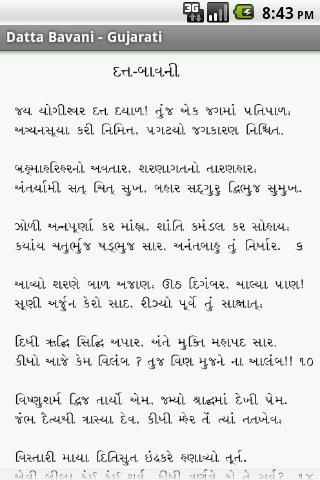 3G 8:43 PM
Datta Bavani - Gujarati
દત્ત-બાવની
જય યોગીશ્વર દત્ત દયાળ! તુંજ એક જગમાં પ્રતિપાળ;
અત્ર્યનસૂયા કરી નિમિત્ત, પગટયો જગકારણ નિશ્ચિત.
બ્રહ્માહરિહરનો અવતાર, શરણાગતનો તારણહાર;
અંતર્યામી સત્ ચિત્ સુખ, બહાર સદ્ગુરુ દ્વિભુજ સુમુખ.
ઝોળી અન્નપુર્ણા કર માંહ્ય, શાંતિ કમંડલ કર સોહાય;
કયાંય ચતુર્ભુજ ષડ્ભુજ સાર, અનંતબાહુ તું નિર્ધાર. ૬
આવ્યો શરણે બાળ અજાણ; ઊઠ દિગંબર, ચાલ્યા પ્રાણ!
સૂણી અર્જુન કેરો સાદ, રીઝ્યો પૂર્વે તું સાક્ષાત્;
દિધી ઋદ્ધિ સિદ્ધિ અપાર, અંતે મુક્તિ મહાપદ સાર.
કીધો આજે કેમ વિલંબ ? તુજ વિણ મુજને ના આલંબ!! ૧૦
વિષ્ણુશર્મ દ્વિજ તાર્યો એમ, જમ્યો શ્રાદ્ધમાં દેખી પ્રેમ.
જંભ દૈત્યથી ત્રાસ્યા દેવ, કીધી મ્હેર તેં ત્યાં તતખેવ;
વિસ્તારી માયા દિતિસુત ઇંદ્રકરે હણાવ્યો તૂર્ત.